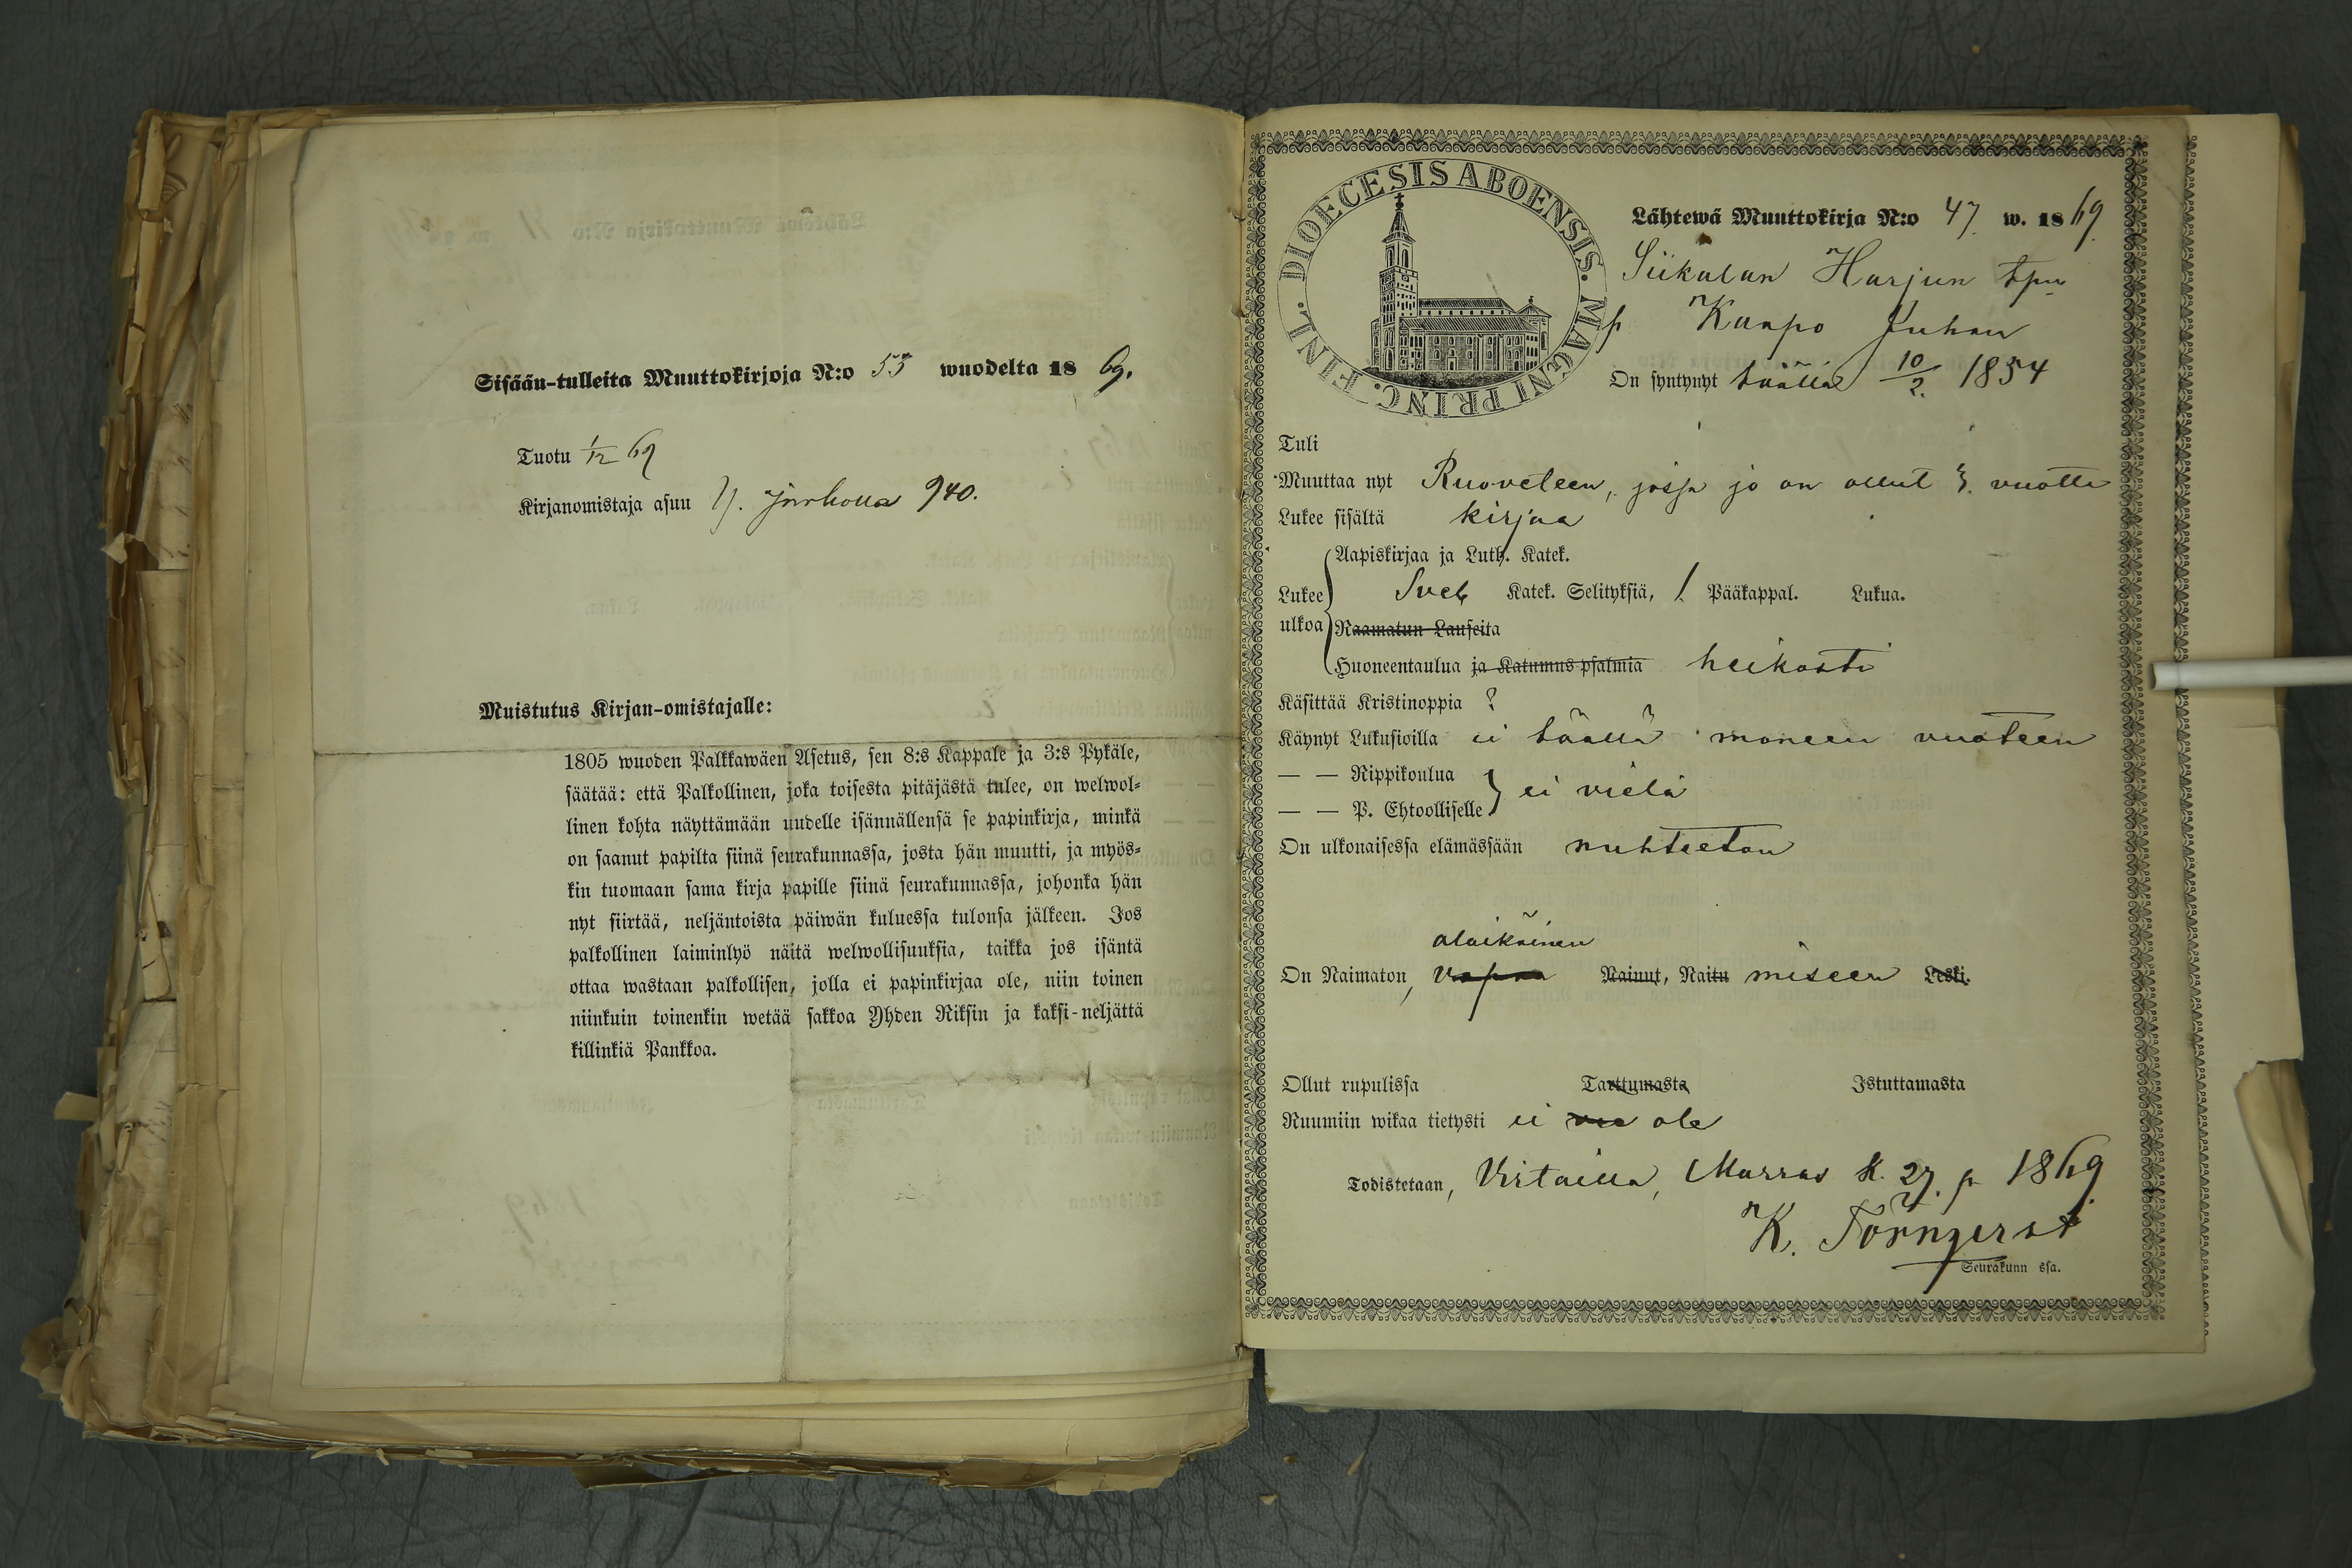 Sisään-tulleita Muuttokirjoja N:o 55 wuodelta 18 69.
Tuotu 1/12 69
Kirjanomistaja asuu 940.
Muistutus Kirjan-omistajalle:
1805 wuoden Palkkawäen Asetus, sen 8:s Kappale ja 3:s Pykäle,
säätää: että Palkollinen, joka toisesta pitäjästä tulee, on welwol-
linen kohta näyttämään uudelle isännällensä se papinkirja, minkä
on saanut papilta siinä seurakunnassa, josta hän muutti, ja myös-
kin tuomaan sama kirja papille siinä seurakunnassa, johonka hän
nyt siirtää, neljäntoista päiwän kuluessa tulonsa jälkeen. Jos
palkollinen laiminlyö näitä welwollisuuksia, taikka jos isäntä
ottaa wastaan palkollisen, jolla ei papinkirjaa ole, niin toinen
niinkuin toinenkin wetää sakkoa Yhden Riksin ja kaksi-neljättä
killinkiä Pankkoa.
DIOECESIS ABOENSIS. MAGNI PRINC. FINL.
Lähtewä Muuttokirja N:o 47. w. 18 69.
Siikalan Harjun
p Kaapo Juhan
On syntynyt täällä 10/2. 1854
Tuli
Muuttaa nyt Ruoveteen, jossa jo on ollut 3. vuotta
Lukee sisältä kirjaa
Aapiskirjaa ja Luth. Katek.
Lukee Sveb Katek. Selityksiä, 1. Pääkappal. Lukua.
ulkoa Raamatun Lauseita
Huoneentaulua ja Katumus psalmia heikosti
Käsittää Kristinoppia ?
Käynyt Lukusioilla ei täällä moneen vuoteen
— — Rippikoulua
ei vielä
— — P. Ehtoolliselle
On ulkonaisessa elämässään nuhteeton
alaikäinen
On Naimaton, vapaa Nainut, Naitu miseen Leski.
Ollut rupulissa Tarttumasta Istuttamasta
Ruumiin wikaa tietysti ei ole
Todistetaan, Virtailla, Marras K. 27. p 1869.
K. Törnqvist
Seurakunn ssa.